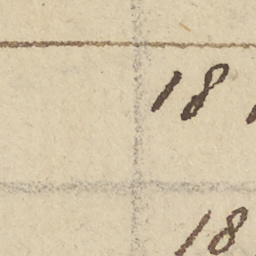 18
18